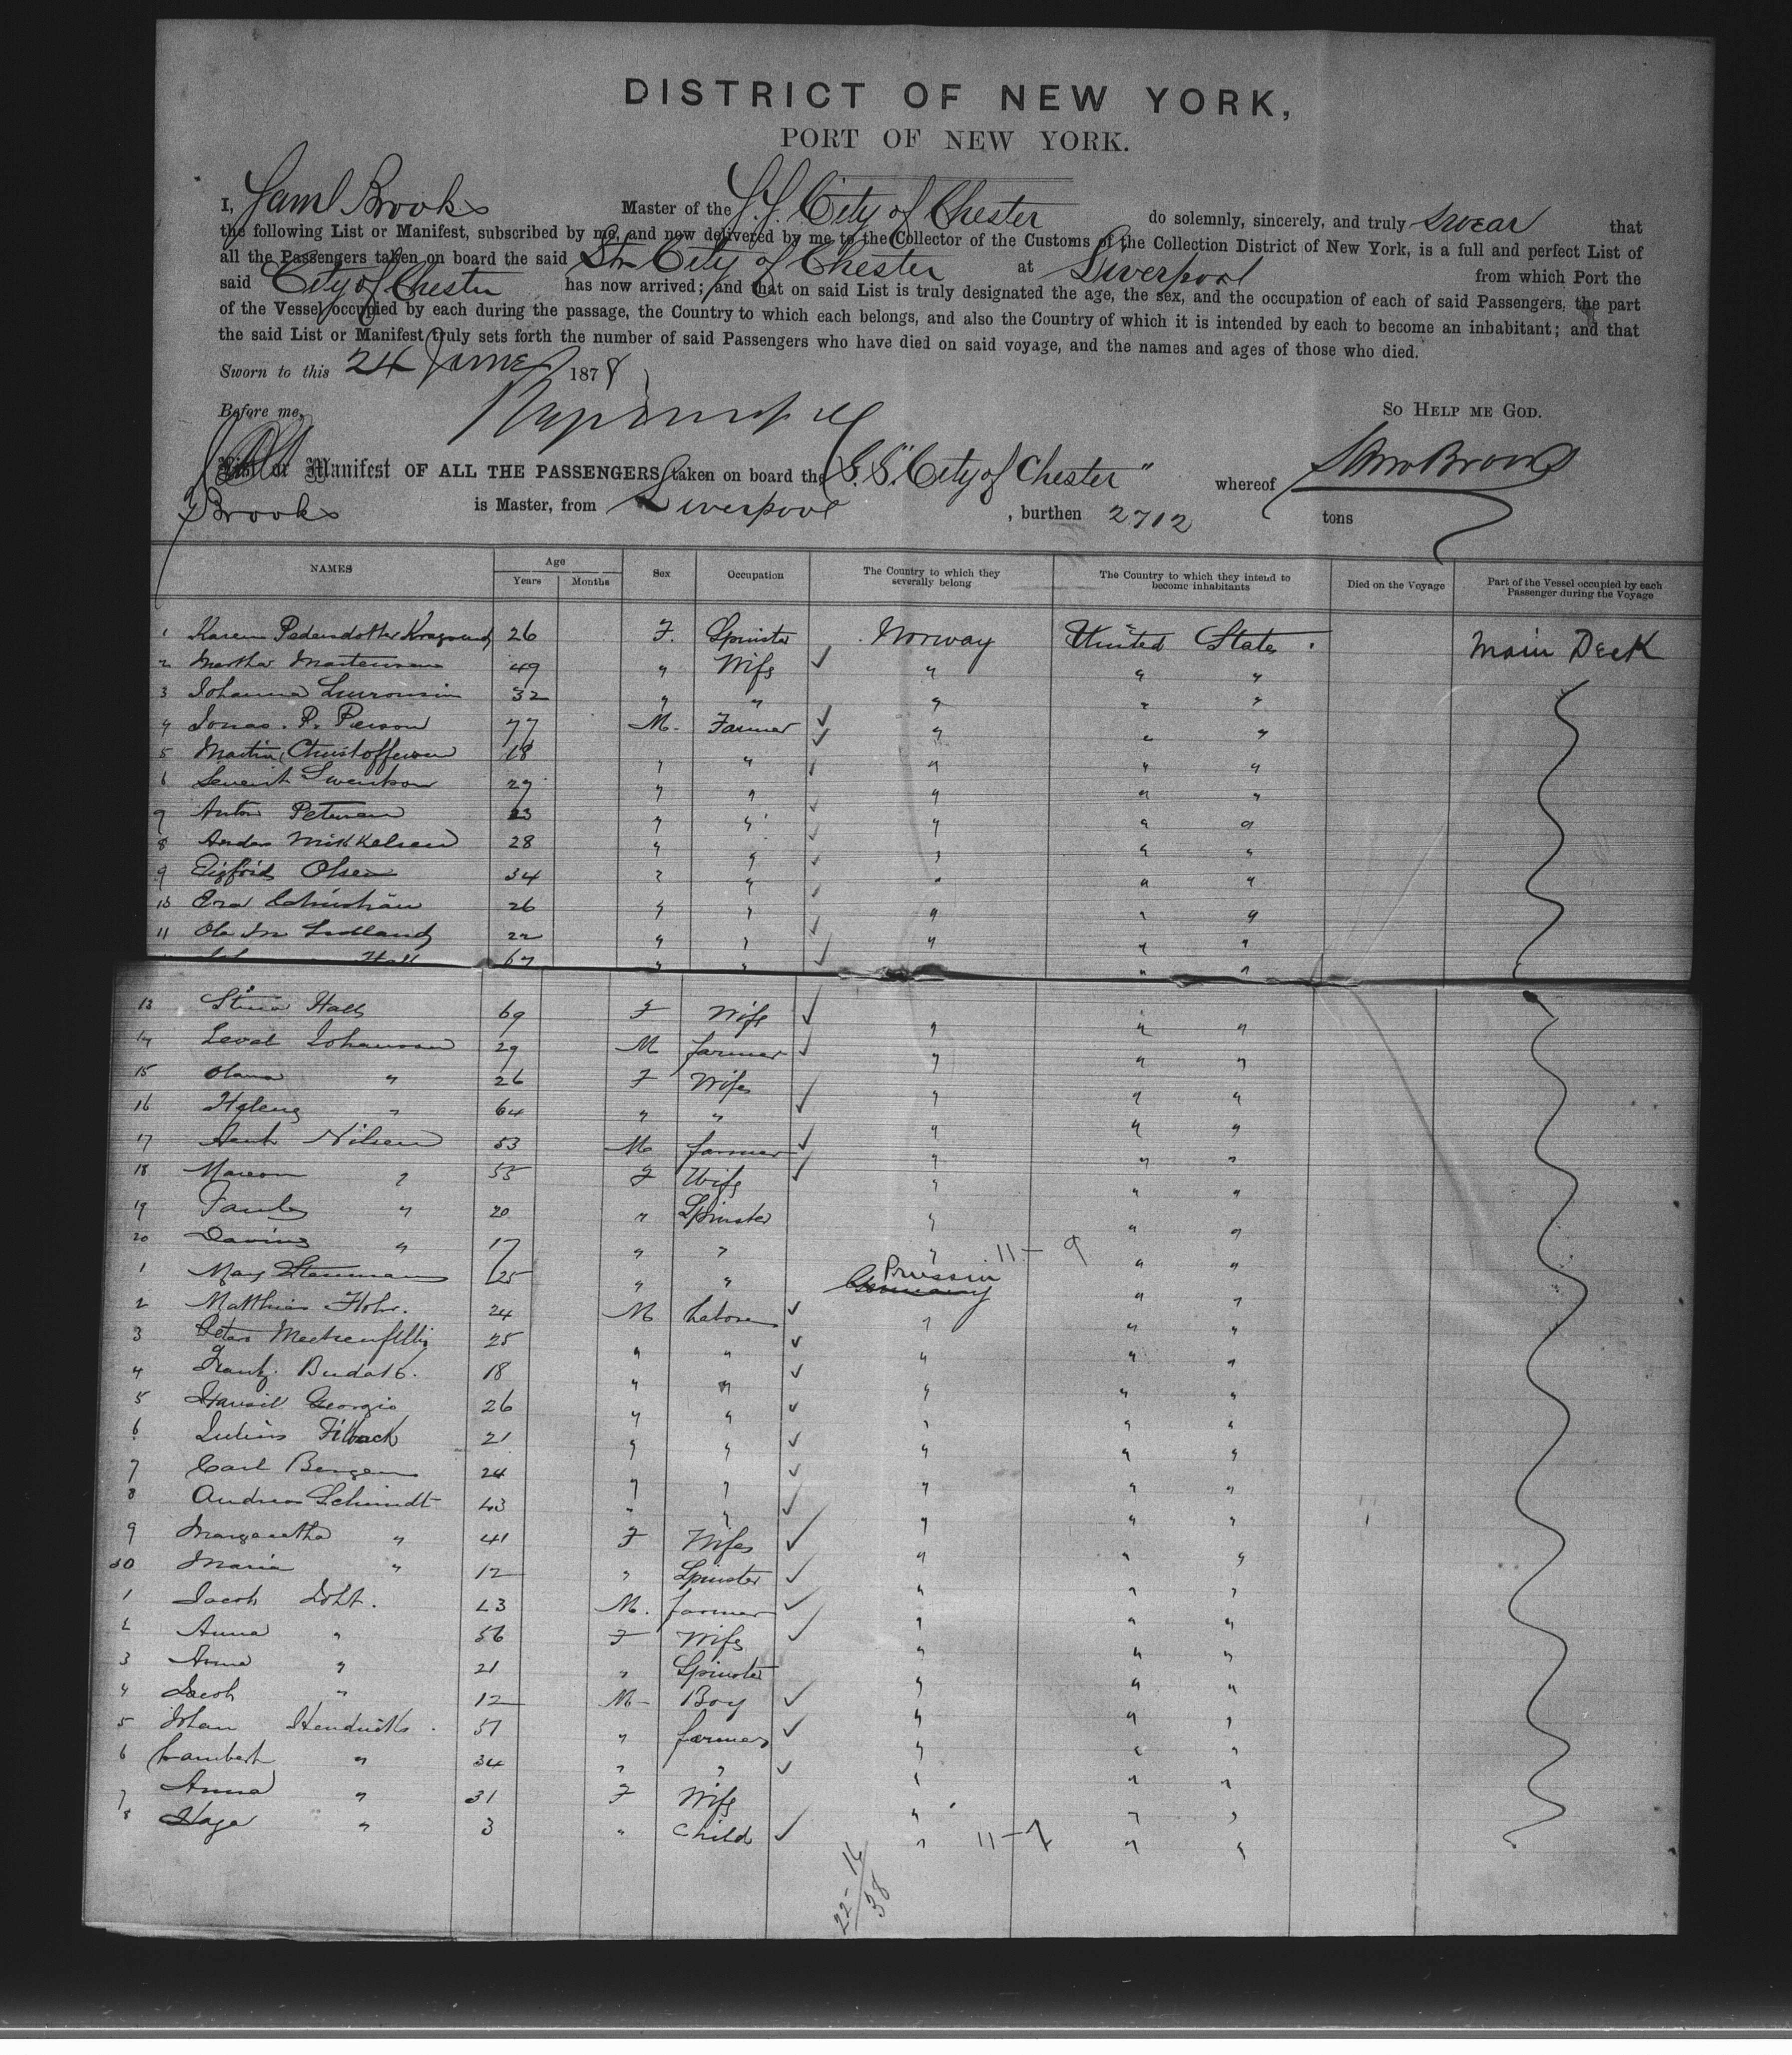 DISTRICT OF NEW YORK,
PORT OF NEW YORK.
I, Saml Brooks Master of the S.S. City of Chester do solemnly, sincerely, and truly swear that
the following List or Manifest, subscribed by me, and now delivered by me to the Collector of the Customs of the Collection District of New York, is a full and perfect List of
all the Passengers taken on board the said Str City of Chester at Liverpool from which Port the
said City of Chester has now arrived; and that on said List is truly designated the age, the sex, and the occupation of each of said Passengers, the part
of the Vessel occupied by each during the passage, the Country to which each belongs, and also the Country of which it is intended by each to become an inhabitant; and that
the said List or Manifest truly sets forth the number of said Passengers who have died on said voyage, and the names and ages of those who died.
Sworn to this 24 June 1878
Before me, So Help me God.
List or Manifest OF ALL THE PASSENGERS taken on board the S.S. "City of Chester" whereof Saml Brooks
Brooks is Master, from Liverpool , burthen 2712 tons
NAMES Age Years Months Sex Occupation The Country to which they severally belong The Country to which they intend to become inhabitants Died on the Voyage Part of the Vessel occupied by each Passenger during the Voyage
1 Karen Pedersdotter 26 F. Spinster Norway United States. Main Deck
2 Martha 49 " Wife " " "
3 Johanna 32 " " " " "
4 Jonas. P. Pierson 77 M. Farmer " " "
5 Martin Christoffersen 18 " " " " "
6 29 " " " " "
7 Anton Petersen 23 " " " " "
8 Anders Mikkelsen 28 " " " " "
9 Sigfrid Olsen 34 " " " " "
10 26 " " " " "
11 Ole 22 " " " " "
Hall 67 " " " "
13 Stina Hall 69 F Wife " " "
14 Johansen 29 M farmer " " "
15 Olana " 26 F Wife " " "
16 Helena " 64 " " " " "
17 Nilsen 53 M farmer " " "
18 " 55 F Wife " " "
19 " 20 " Spinster " " "
20 " 17 " " " 11-9 " "
1 Mary 25 " " Prussia Germany " "
2 Matthias Hohr. 24 M Labore " " "
3 Peter 25 " " " " "
4 Frantz. 18 " " " " "
5 Georgio 26 " " " " "
6 Julius Filback 21 " " " " "
7 Carl Bergen 24 " " " " "
8 Andreas Schmidt 43 " " " " "
9 Margaretha " 41 F Wife " " "
30 Maria " 12 " Spinster " " "
1 Jacob M. farmer " " "
2 Anna " 56 F Wife " " "
3 Anna " 21 " Spinster " " "
4 Jacob " 12 M Boy " " "
5 Johan Hendricks. " farmer " " "
6 Lambert " 34 " " " " "
7 Anna " 31 F Wife " " "
8 " 3 " Child " 11-7 " "
22-16
38